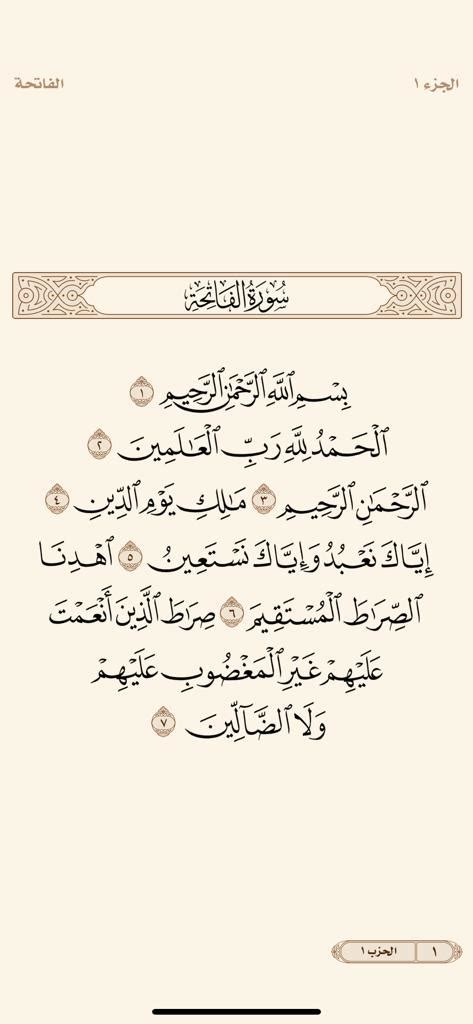 الجزء ١
الفاتحة
سُورَةُ الفَاتِحَةِ
بِسْمِ ٱللَّهِ ٱلرَّحْمَٰنِ ٱلرَّحِيمِ ١
ٱلْحَمْدُ لِلَّهِ رَبِّ ٱلْعَٰلَمِينَ ٢
ٱلرَّحْمَٰنِ ٱلرَّحِيمِ ٣ مَٰلِكِ يَوْمِ ٱلدِّينِ ٤
إِيَّاكَ نَعْبُدُ وَإِيَّاكَ نَسْتَعِينُ ٥ ٱهْدِنَا
ٱلصِّرَٰطَ ٱلْمُسْتَقِيمَ ٦ صِرَٰطَ ٱلَّذِينَ أَنْعَمْتَ
عَلَيْهِمْ غَيْرِ ٱلْمَغْضُوبِ عَلَيْهِمْ
وَلَا ٱلضَّآلِّينَ ٧
١ الحزب ١